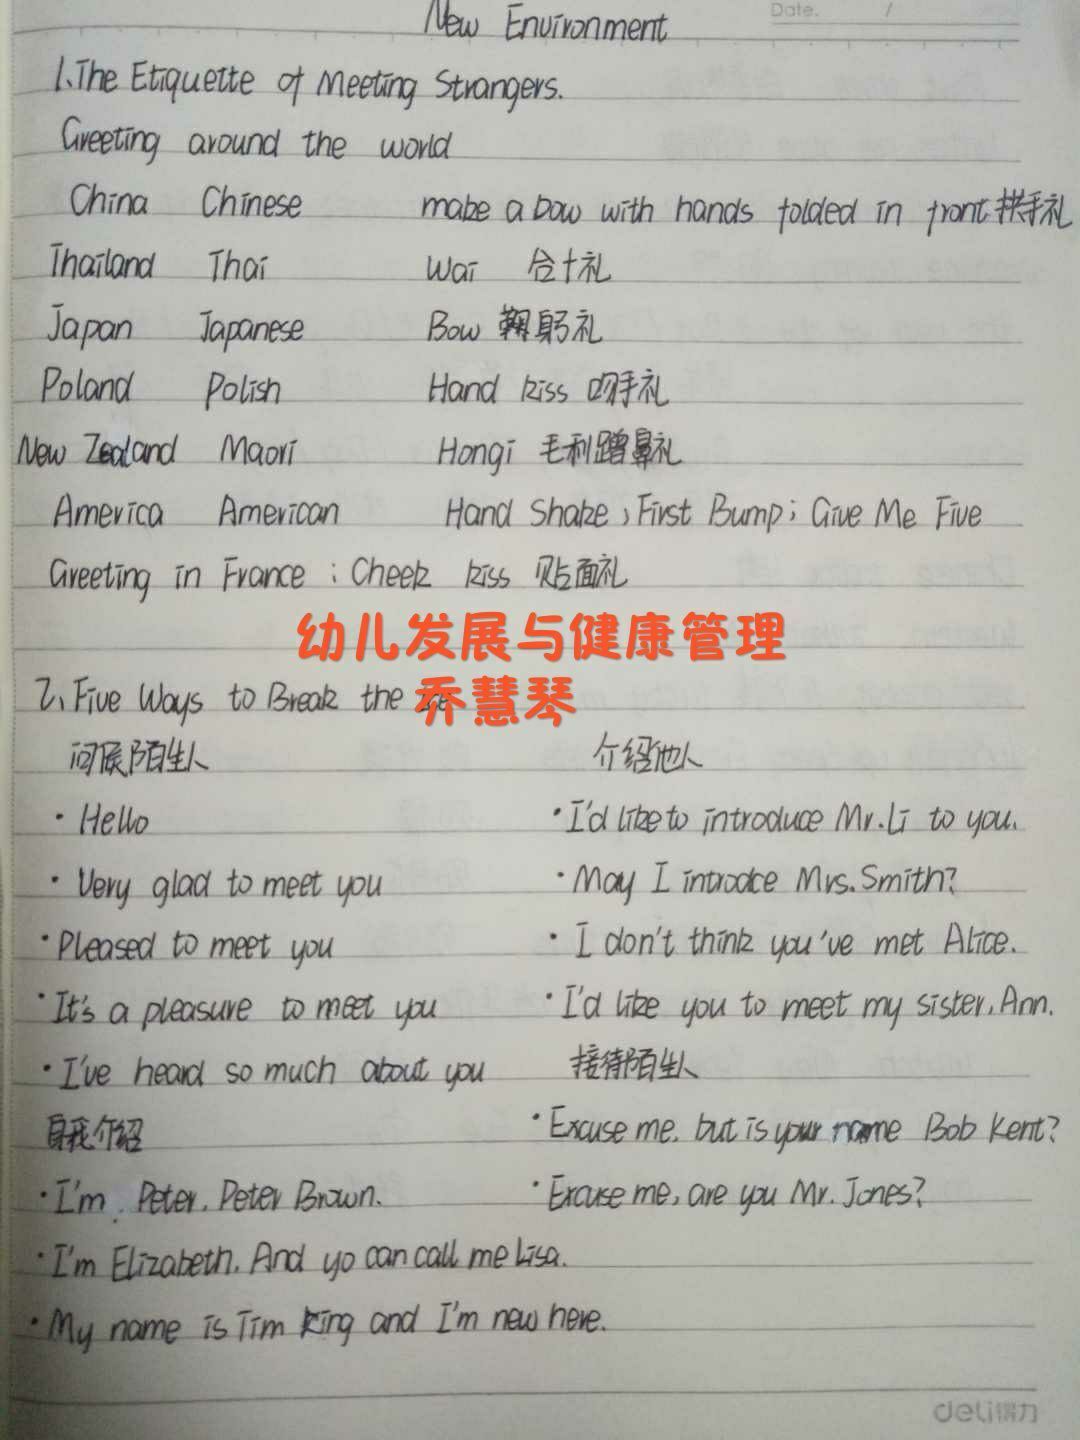 Date. /
New Environment
1、The Etiquette of Meeting Strangers.
Greeting around the world
China Chinese make a bow with hands folded in front 拱手礼
Thailand Thai Wai 合十礼
Japan Japanese Bow 鞠躬礼
Poland Polish Hand kiss 吻手礼
New Zealand Maori Hongi 毛利蹭鼻礼
America American Hand Shake; First Bump; Give Me Five
Greeting in France : Cheek kiss 贴面礼
幼儿发展与健康管理
2、Five Ways to Break the Ice
乔慧琴
问候陌生人
· Hello
· Very glad to meet you
· Pleased to meet you
· It's a pleasure to meet you
· I've heard so much about you
自我介绍
· I'm Peter. Peter Brown.
· I'm Elizabeth. And yo can call me Lisa.
· My name is Tim King and I'm new here.
介绍他人
· I'd like to introduce Mr. Li to you.
· May I introdce Mrs. Smith?
· I don't think you've met Alice.
· I'd like you to meet my sister, Ann.
接待陌生人
· Excuse me. but is your name Bob Kent?
· Excuse me, are you Mr. Jones?
deli得力